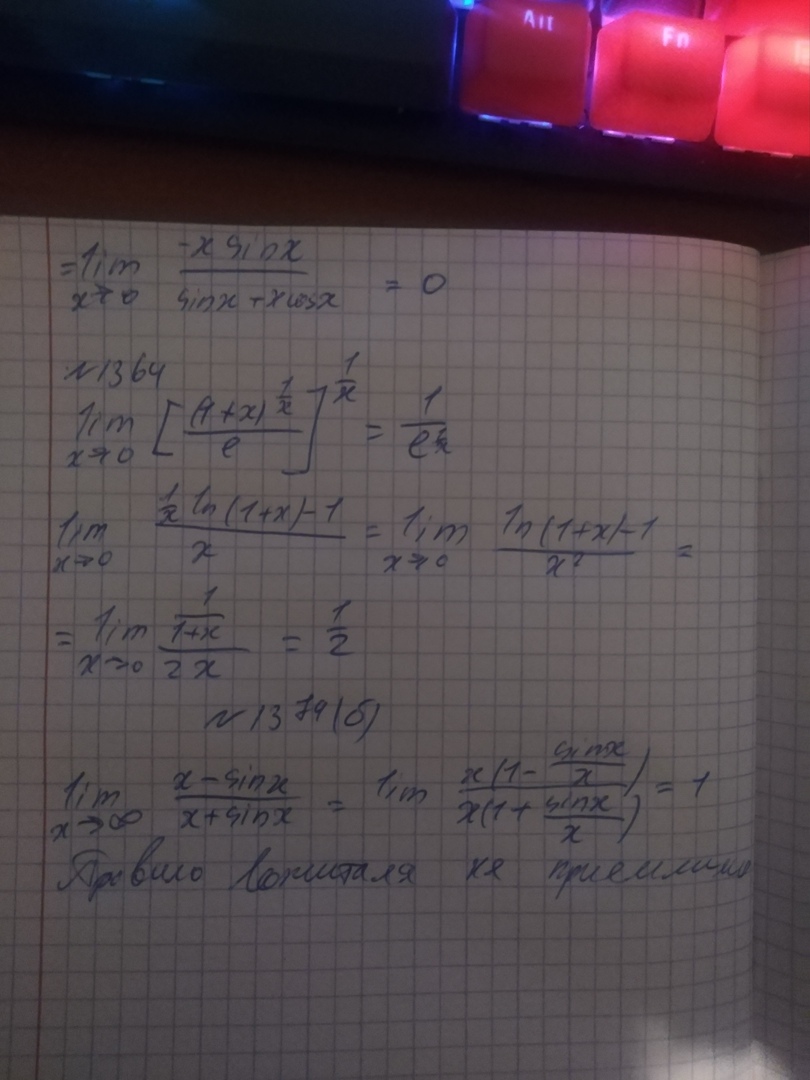 Alt
Fn
= lim x→0 (-x sinx)/(sinx + xcosx) = 0
№1364
lim x→0 [((1+x)^(1/x))/e]^(1/x) =
lim x→0 ((1/x) ln(1+x)-1)/x = lim x→0 (ln(1+x)-1)/x² =
= lim x→0 (1/(1+x))/(2x) = 1/2
№1379(б)
lim x→∞ (x-sinx)/(x+sinx) = lim (x(1-(sinx/x)))/(x(1+(sinx/x))) = 1
Правило Лопиталя